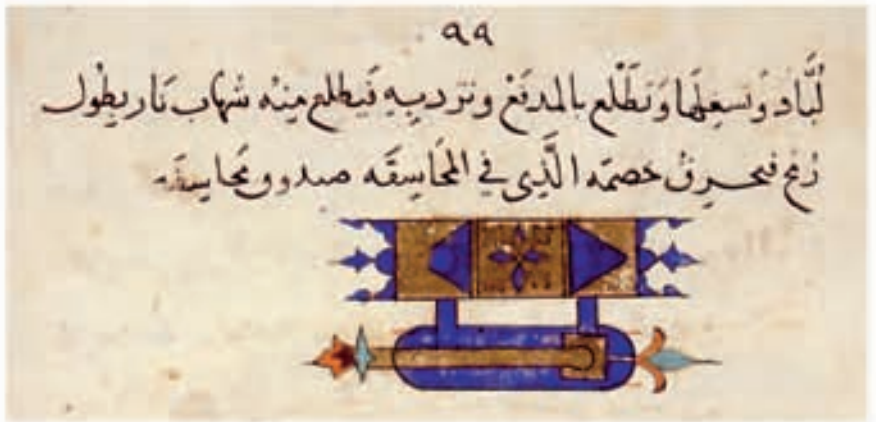 ٩٩
لُبَّاد وَتسعِلهَا وَتَطْلع بالمدفَعْ وتردبِهِ فَيطلع مِنْه شهَاب نَار بطُول
رُمْح فيحرِقْ خصمَه الَّذِى فِي المحَاسِقَه صندوق محَاسِقَه